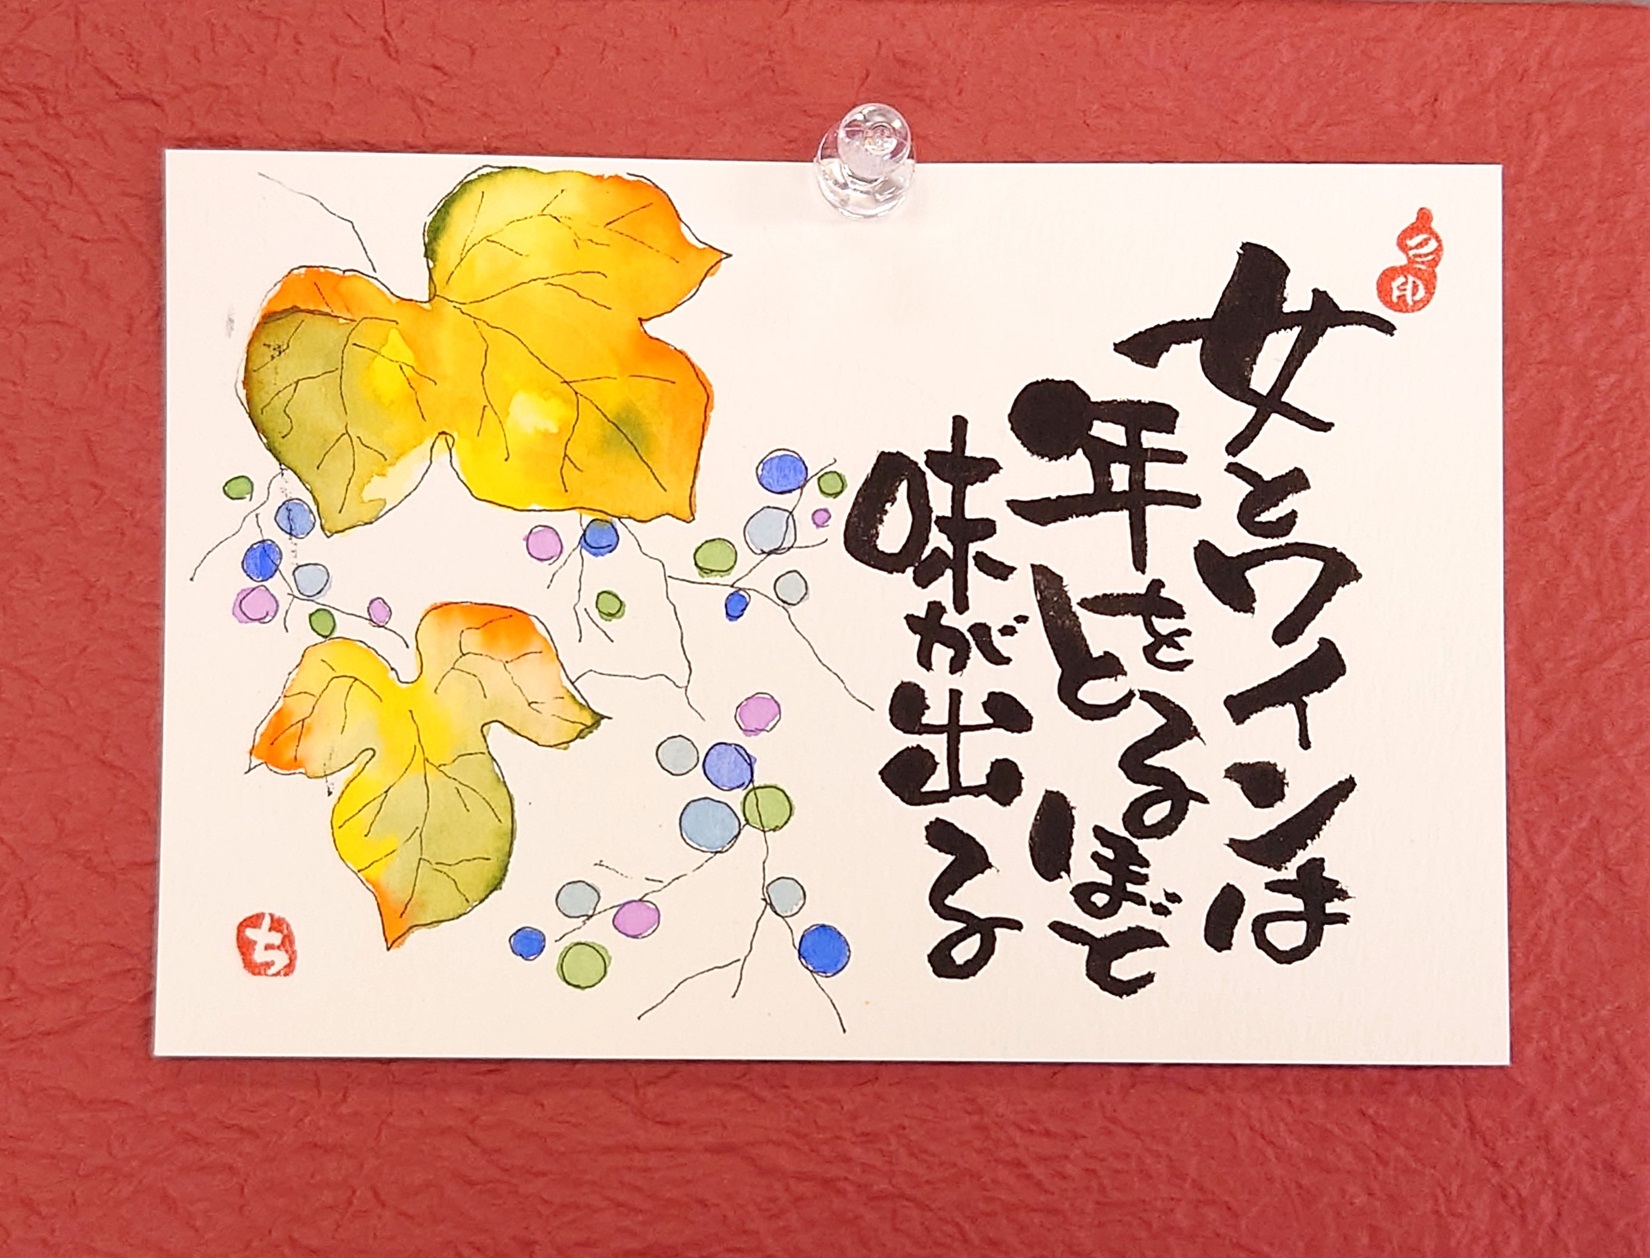 女とワインは
年をとるほど
味が出る
ち